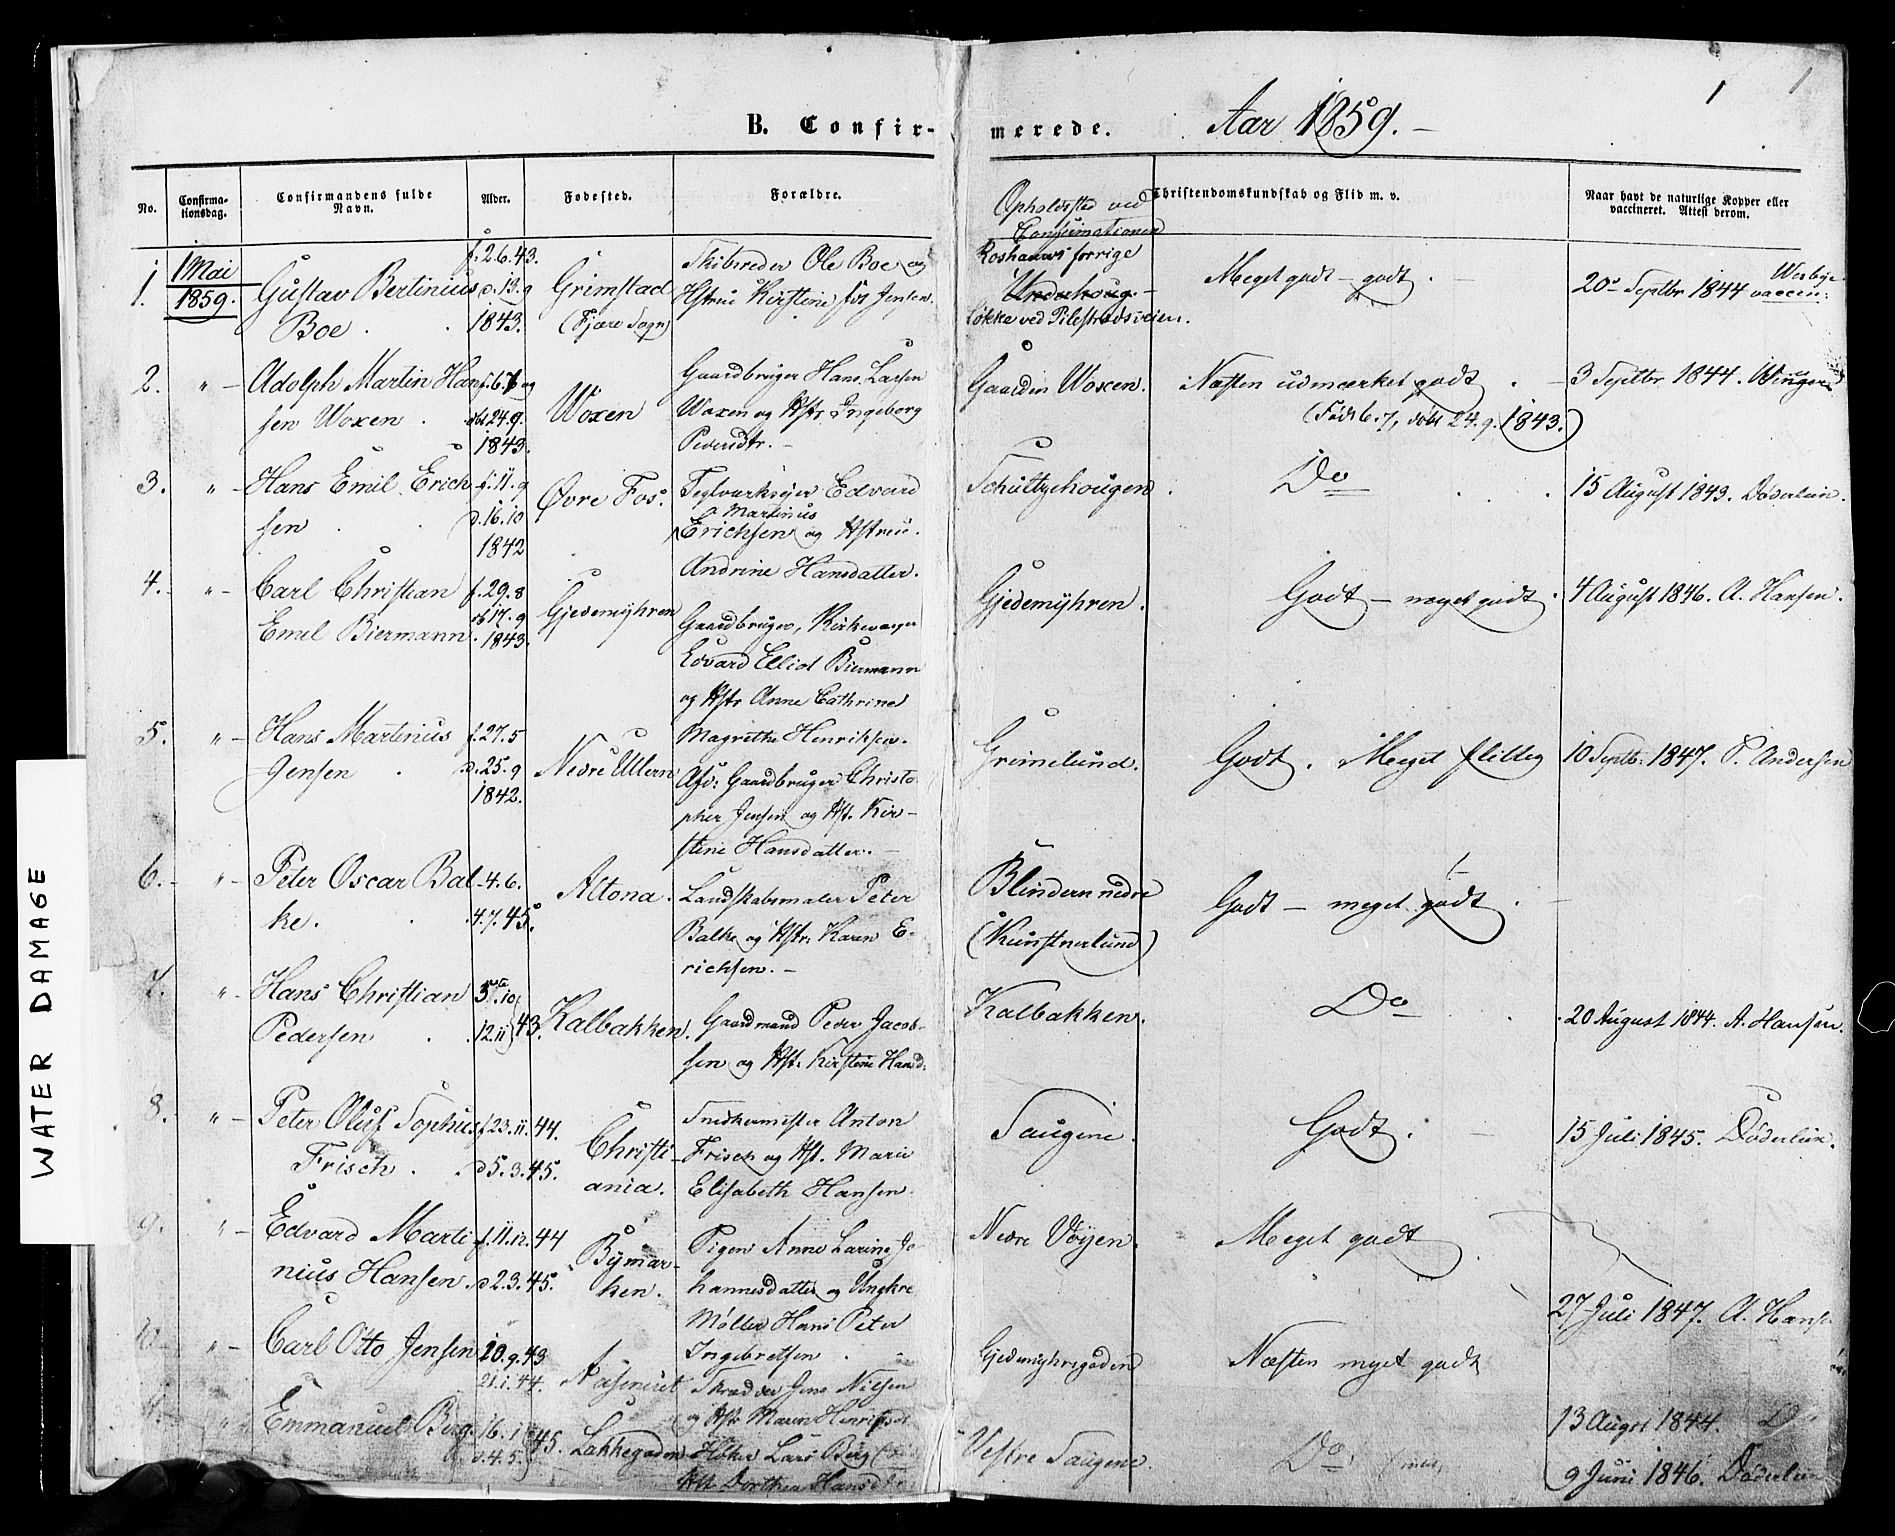 B. Confir-
merede. Aar 1859.
1
1
No.
Confirma-
tionsdag.
Confirmandens fulde
Navn.
Alder.
Fødested.
Forældre.
Opholdssted ved
Confirmationen
Christendomskundskab og Flid m. v.
Naar havt de naturlige Kopper eller
vaccineret. Attest derom.
1.
1 Mai
1859.
Gustav Bertinius
Boe.
f. 2.6.43.
d. 13.9
1843.
Grimstad
(Fjære Sogn)
Skibsreder Ole Boe og
Hstrue Kirstine f. Jensen.
forrige
Løkke ved Pilestrædsveien.
Meget godt – godt.
20 Septbr 1844
vaccin:
2.
" –
Adolph Martin Han
sen Woxen.
f. 6.7 og
dbt 24.9.
1843.
Woxen
Gaardbruger Hans Larsen
Woxen og Hstr. Ingeborg
Pedersdtr. –
Gaarden Woxen.
Næsten udmærket godt. –
(Født 6.7, døbt 24.9. 1843.)
3 Septbr 1844.
3.
" –
Hans Emil Erich
sen
f. 11.9
d. 16.10
1842
Øvre Fos.
Teglværksejer Edvard
Martinus
Erichsen og Hstrue.
Andrine Hansdatter.
Schultzehougen.
Do
15 August 1843. Døderlein.
4.
" –
Carl Christian
Emil Biermann.
f. 29.8
db 17.9
1843.
Gjedemyhren
Gaardbruger, Kirkeværger
Edvard Elliot Biermann
og Hstr Anne Cathrine
Magrethe Henriksen.
Gjedemyhren.
Godt – meget godt.
4 August 1846. A. Hansen.
5.
" –
Hans Martinius
Jensen.
f. 27.5
d. 25.9
1842.
Nedre Ullern
Afd: Gaardbruger Christo
pher Jensen og Hst. Kir–
stine Hansdatter. –
Grimelund.
Godt. Meget flittig
10 Septb: 1847. P. Andersen
6. –
" –
Peter Oscar Bal
ke.
4.6.
4.7.45.
Altona.
Landskabsmaler Peter
Balke og Hstr: Karen E-
richsen. –
Blindern nedre
(Kunstnerlund)
Godt – meget godt.
7.
" –
Hans Christian
Pedersen
10
12.11 } 43.
Kalbakken.
Gaardmand Peder Jacob-
sen og Hst: Kirstine Hansd:
Kalbakken.
Do
20 August 1844. A. Hansen.
8.
" –
Peter Oluf Sophus
Frisch.
f. 23.11.44.
d 5.3.45.
Christi–
ania.
Snedkermester Anton
Frisch og Hst. Marie
Elisabeth Hansen.
Saugene.
Godt.
15 Juli 1845. Døderlein.
9.
" –
Edvard Marti
nius Hansen.
f. 11.12.44
d 2.3.45.
Bymar–
ken.
Pigen Anne Larine Jo
hannesdatter og Ungkr
Møller Hans Peter
Ingebretsen.
Nedre Vøyen.
Meget godt
27 Juli 1847. A. Hans
10.
" –
Carl Otto Jensen
10.9.43
21.1.44.
Skrædder Jens Nilsen
og Hstr Maren Henriksdt
Gjedemyhrsgaden
Næsten meget godt
13 Augst 1844. Do
11.
"
Emmanuel Berg.
16.1
d. 4.5. } 45.
Lakkegaden
Høker Lars Berg
Hst Dorthea Hansd
Vestre Saugene.
Do
9 Juni 1846. Døderlein
WATER DAMAGE